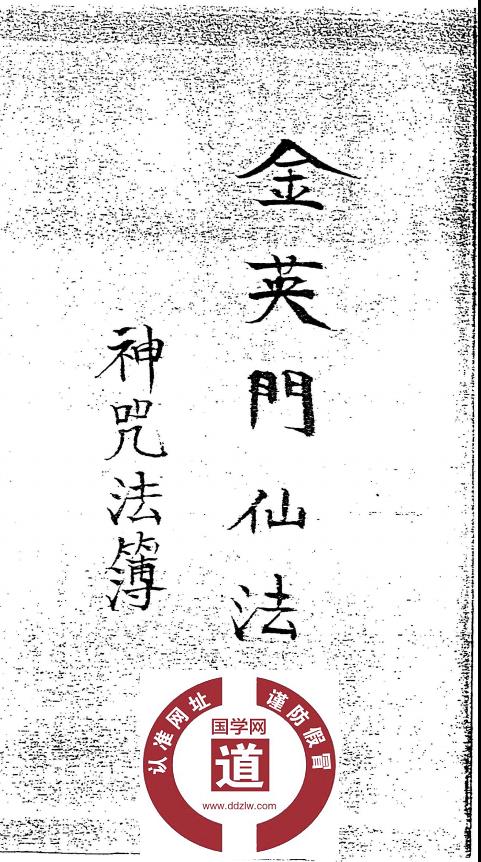 金英門仙法
神咒法簿
认准网址
谨防假冒
国学网
道
www.ddzlw.com